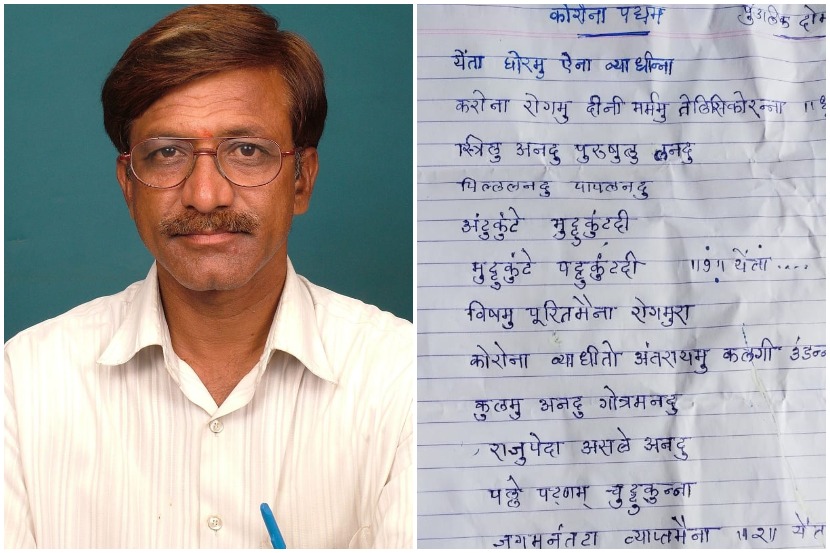 कोरोना पद्यम
पुंडलिक
येंता घोरमु ऐना व्याधीन्ना
करोना रोगमु दीनी मर्ममु तेलिसिकोरन्ना
स्त्रिलु अनदु पुरुषुलु अनदु
पिल्ललनदु पापलनदु
अंटुकुंटे मुट्टुकुंटदी
मुट्टुकुंटे पट्टुकुंटदी ॥१॥ येंता....
विषमु पूरितमैना रोगमुरा
कोरोना व्याधीतो अंतरायमु कलगी
कुलमु अनदु गोत्रमनदु
राजुपेदा असले अनदु
पल्ले पट्नम् चुट्टुकुन्ना
जगमनंतटा व्याप्तमैना ॥२॥